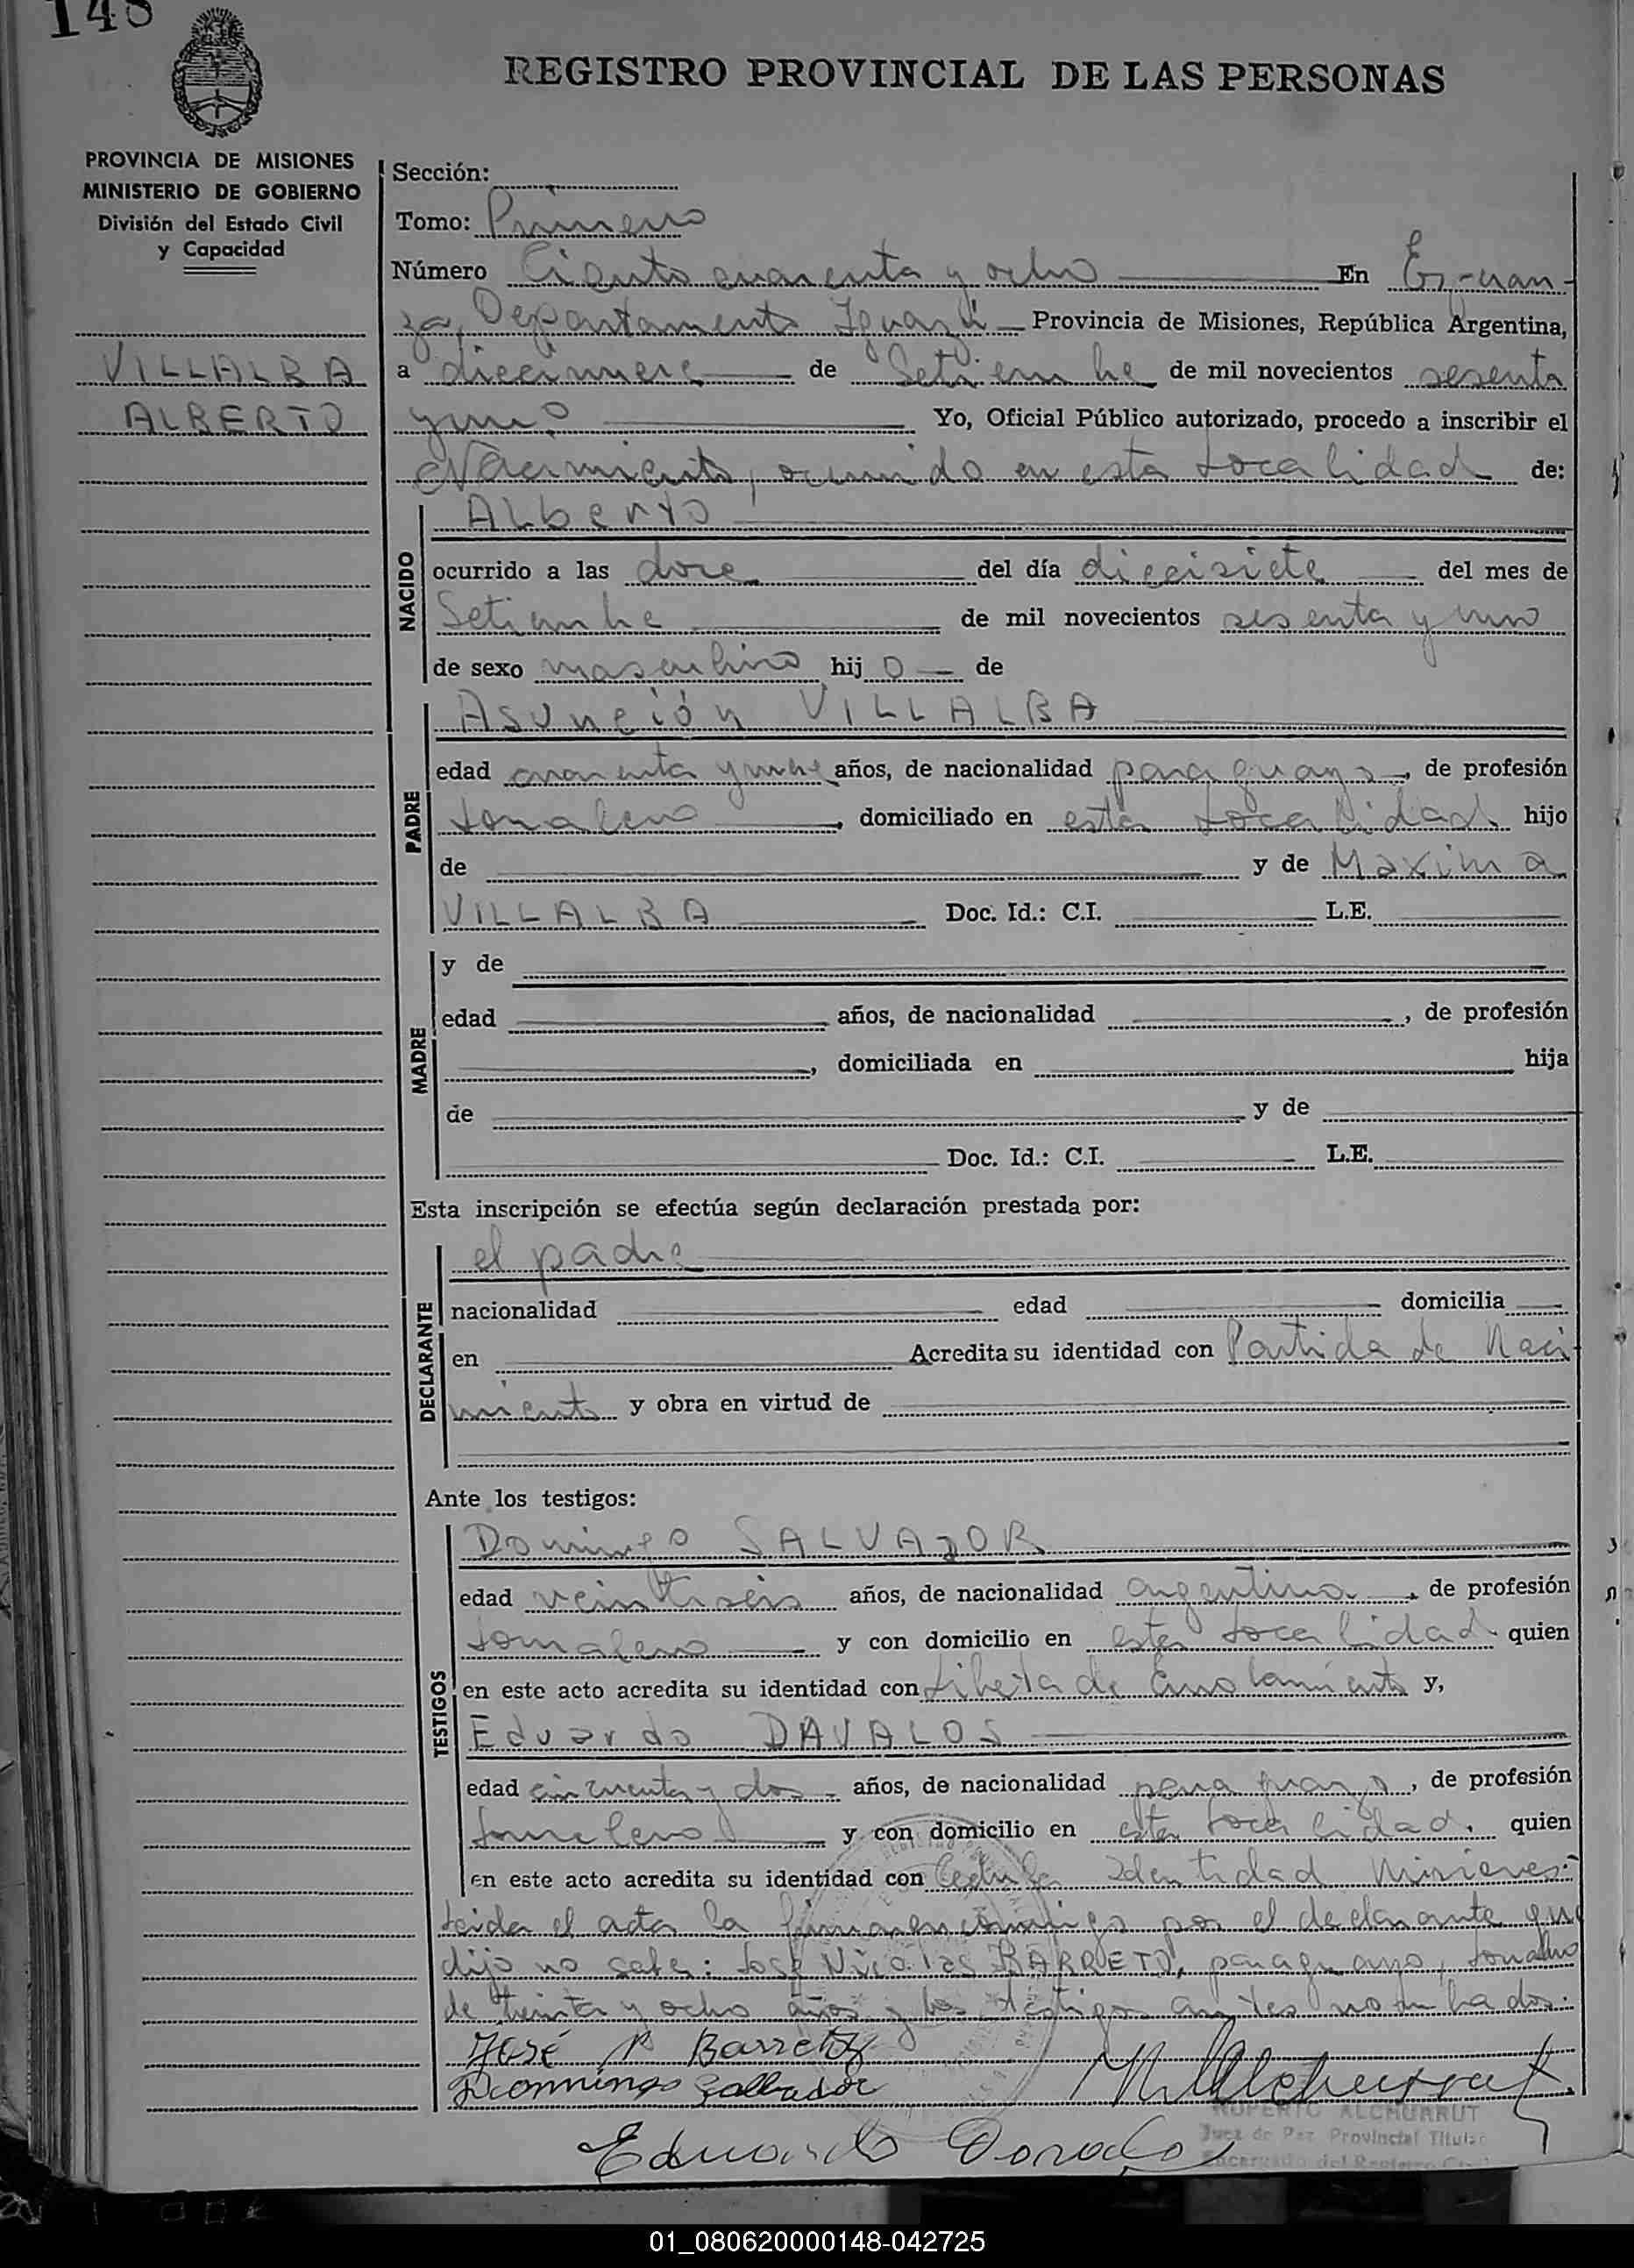 148
REGISTRO PROVINCIAL DE LAS PERSONAS
PROVINCIA DE MISIONES
MINISTERIO DE GOBIERNO
División del Estado Civil
y Capacidad
VILLALBA
ALBERTO
Sección:
Tomo: Primero
Número Ciento cuarenta y ocho En Esperan
za, Departamento Iguazú Provincia de Misiones, República Argentina,
a diecinueve de Setiembre de mil novecientos sesenta
y uno Yo, Oficial Público autorizado, procedo a inscribir el
Nacimiento, ocurrido en esta localidad de:
NACIDO
Alberto
ocurrido a las doce del día diecisiete del mes de
Setiembre de mil novecientos sesenta y uno
de sexo masculino hijo de
PADRE
Asunción VILLALBA
edad cuarenta y nueve años, de nacionalidad paraguayo, de profesión
Jornalero, domiciliado en esta localidad hijo
de y de Maxima
VILLALBA Doc. Id.: C.I. L.E.
MADRE
y de
edad años, de nacionalidad , de profesión
, domiciliada en hija
de y de
Doc. Id.: C.I. L.E.
Esta inscripción se efectúa según declaración prestada por:
DECLARANTE
el padre
nacionalidad edad domicilia
en Acredita su identidad con Partida de Naci
miento y obra en virtud de
Ante los testigos:
TESTIGOS
Domingo SALVADOR
edad veintiseis años, de nacionalidad argentino, de profesión
Jornalero y con domicilio en esta localidad quien
en este acto acredita su identidad con Libreta de Enrolamiento y,
Eduardo DAVALOS
edad cincuenta y dos años, de nacionalidad paraguayo, de profesión
Jornalero y con domicilio en esta localidad, quien
en este acto acredita su identidad con Cedula Identidad Misiones.
Leida el acta la firman conmigo por el declarante que
dijo no saber: José Nicolas BARRETO, paraguayo, Jornalero
de treinta y ocho años y los testigos antes nombrados.
José N Barreto
Domingo Salbador
Eduardo
RUPERTO ALCHURRUT
Juez de Paz Provincial Titular
Encargado del Registro Civil
01_080620000148-042725